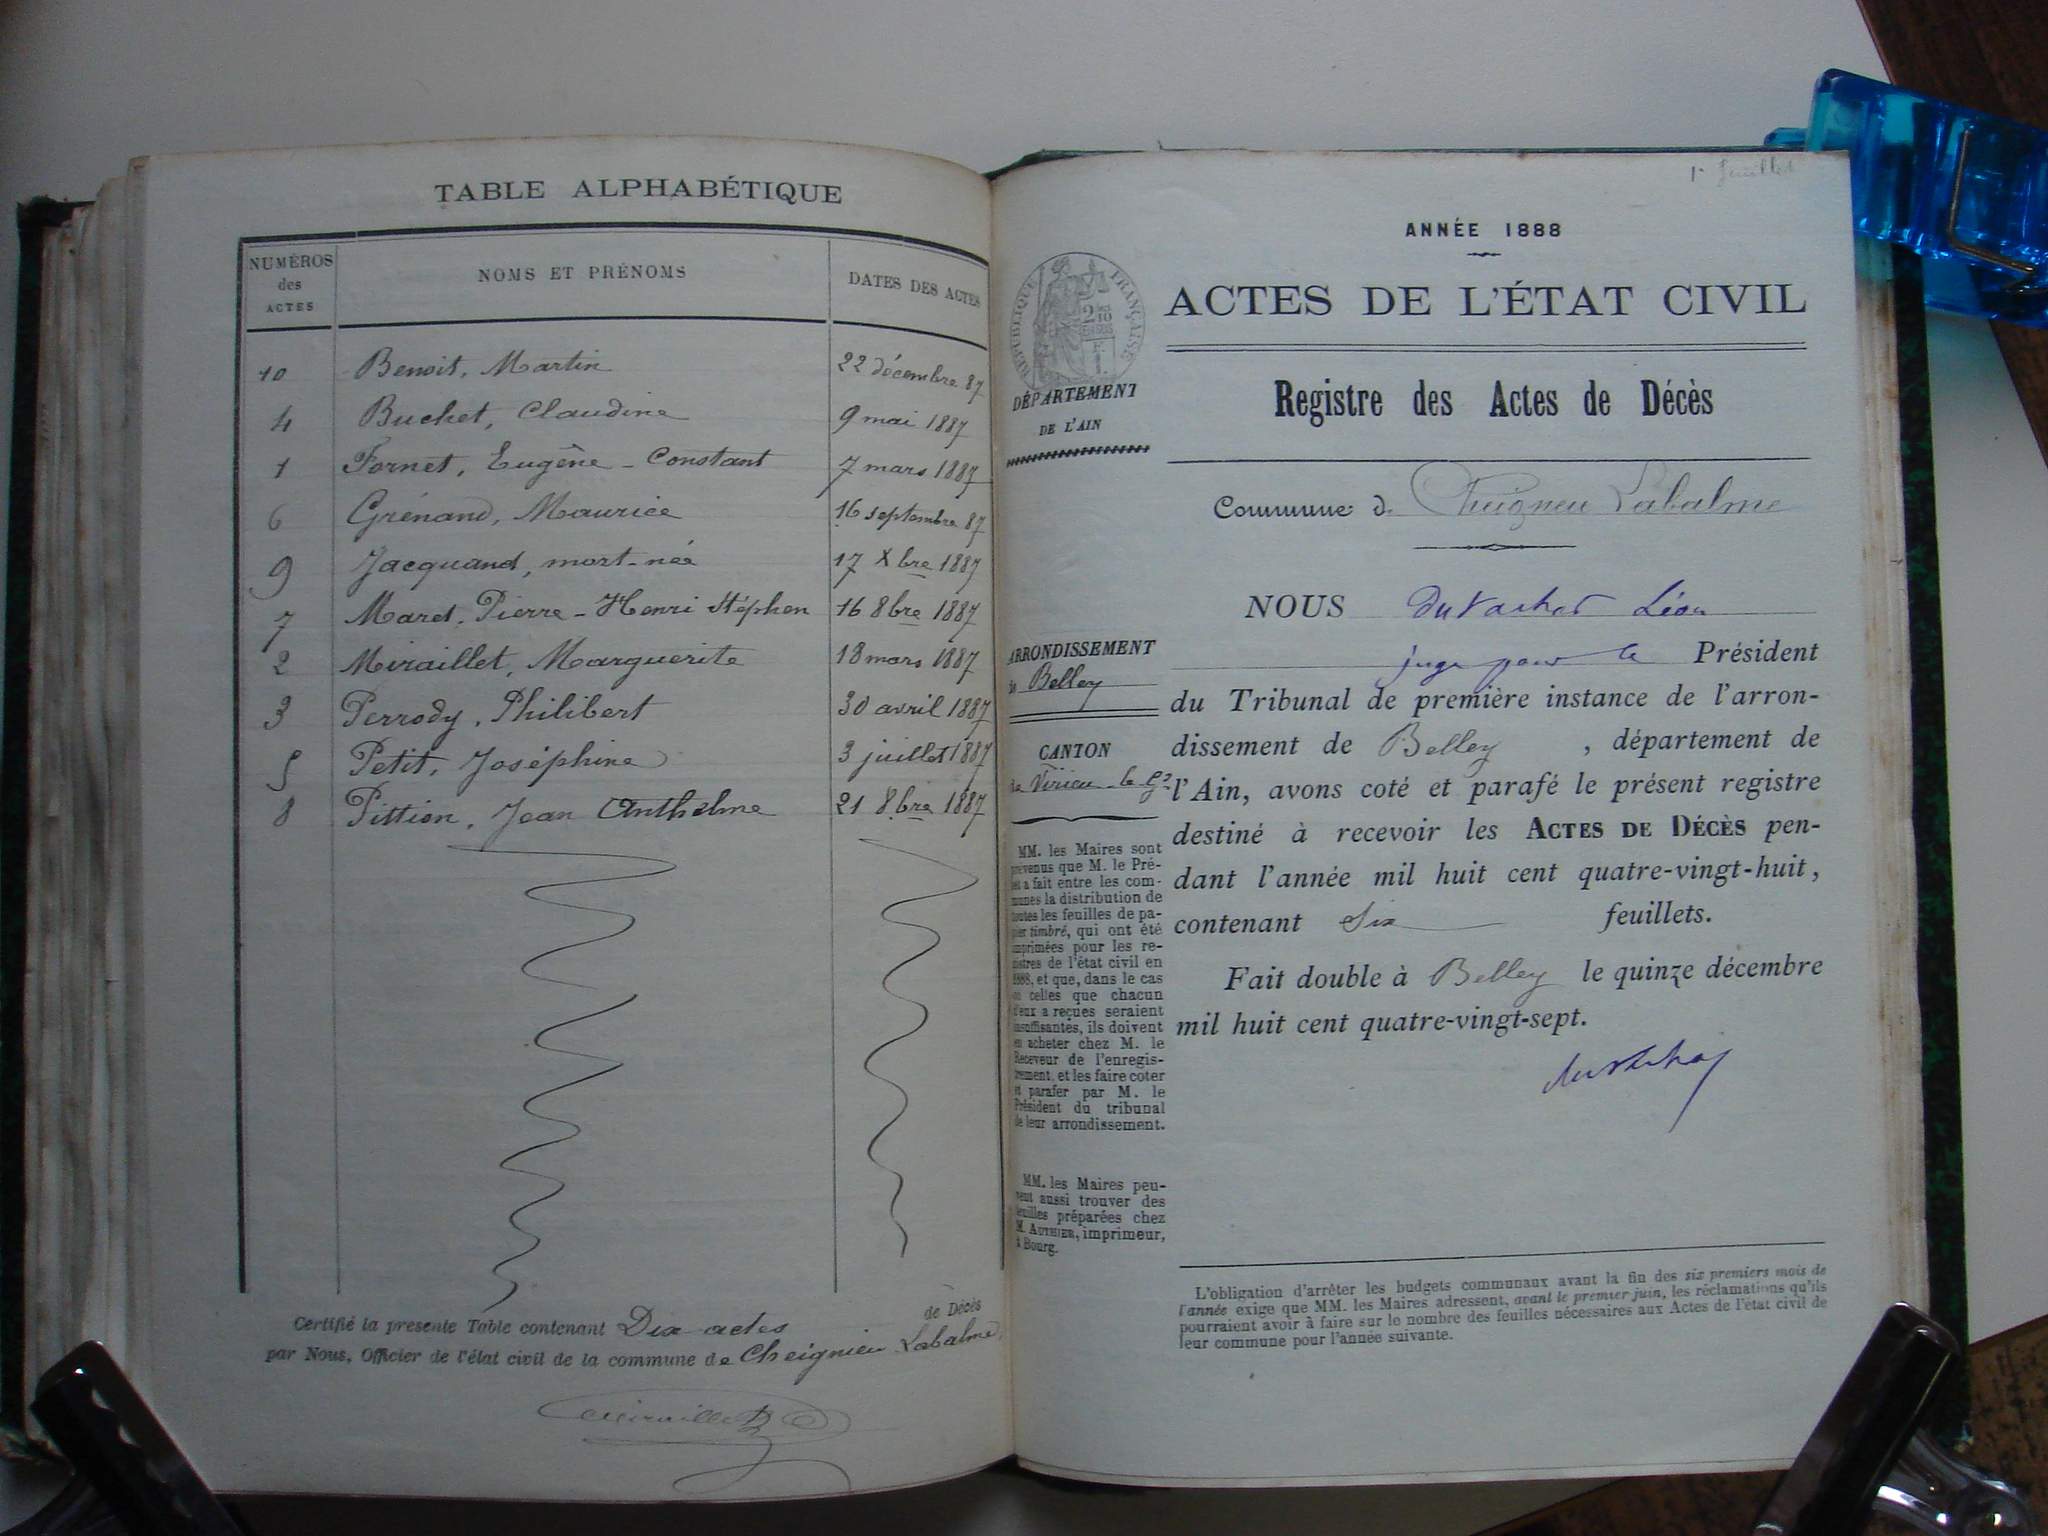 TABLE ALPHABÉTIQUE
NUMÉROS
des
ACTES
NOMS ET PRÉNOMS
DATES DES ACTES
10 Benoit, Martin 22 décembre 87
4 Buchet, Claudine 9 mai 1887
1 Fornet, Eugêne - Constant 7 mars 1887
6 Grénand, Maurice 16 septembre 87
9 Jacquand, mort-née 17 Xbre 1887
7 Maret, Pierre - Henri Stéphen 16 8bre 1887
2 Miraillet, Marguerite 18 mars 1887
3 Perrody, Philibert 30 avril 1887
5 Petit, Joséphine 3 juillet 1887
8 Pittion, Jean Anthelme 21 8bre 1887
Certifié la présente Table contenant Dix actes de Décès
par Nous, Officier de l'état civil de la commune de Cheignieu Labalme
Miraillet
1er feuillet
ANNÉE 1888
ACTES DE L'ÉTAT CIVIL
RÉPUBLIQUE FRANÇAISE
2 DES 10
EN SUS
DÉPARTEMENT
DE L'AIN
Registre des Actes de Décès
Commune de Cheigneu Labalme
NOUS Léon
juge pour le Président
ARRONDISSEMENT
de Belley
du Tribunal de première instance de l'arron-
dissement de Belley, département de
l'Ain, avons coté et parafé le présent registre
destiné à recevoir les ACTES DE DÉCÈS pen-
dant l'année mil huit cent quatre-vingt-huit,
contenant Six feuillets.
Fait double à Belley le quinze décembre
mil huit cent quatre-vingt-sept.
CANTON
de Virieu-le-Gd
MM. les Maires sont
prévenus que M. le Pré-
fet a fait entre les com-
munes la distribution de
toutes les feuilles de pa-
pier timbré, qui ont été
imprimées pour les re-
gistres de l'état civil en
1888, et que, dans le cas
où celles que chacun
d'eux a reçues seraient
insuffisantes, ils doivent
en acheter chez M. le
Receveur de l'enregis-
trement, et les faire coter
et parafer par M. le
Président du tribunal
de leur arrondissement.
MM. les Maires peu-
vent aussi trouver des
feuilles préparées chez
M. AUTHIER, imprimeur,
à Bourg.
L'obligation d'arrêter les budgets communaux avant la fin des six premiers mois de
l'année exige que MM. les Maires adressent, avant le premier juin, les réclamations qu'ils
pourraient avoir à faire sur le nombre des feuilles nécessaires aux Actes de l'état civil de
leur commune pour l'année suivante.